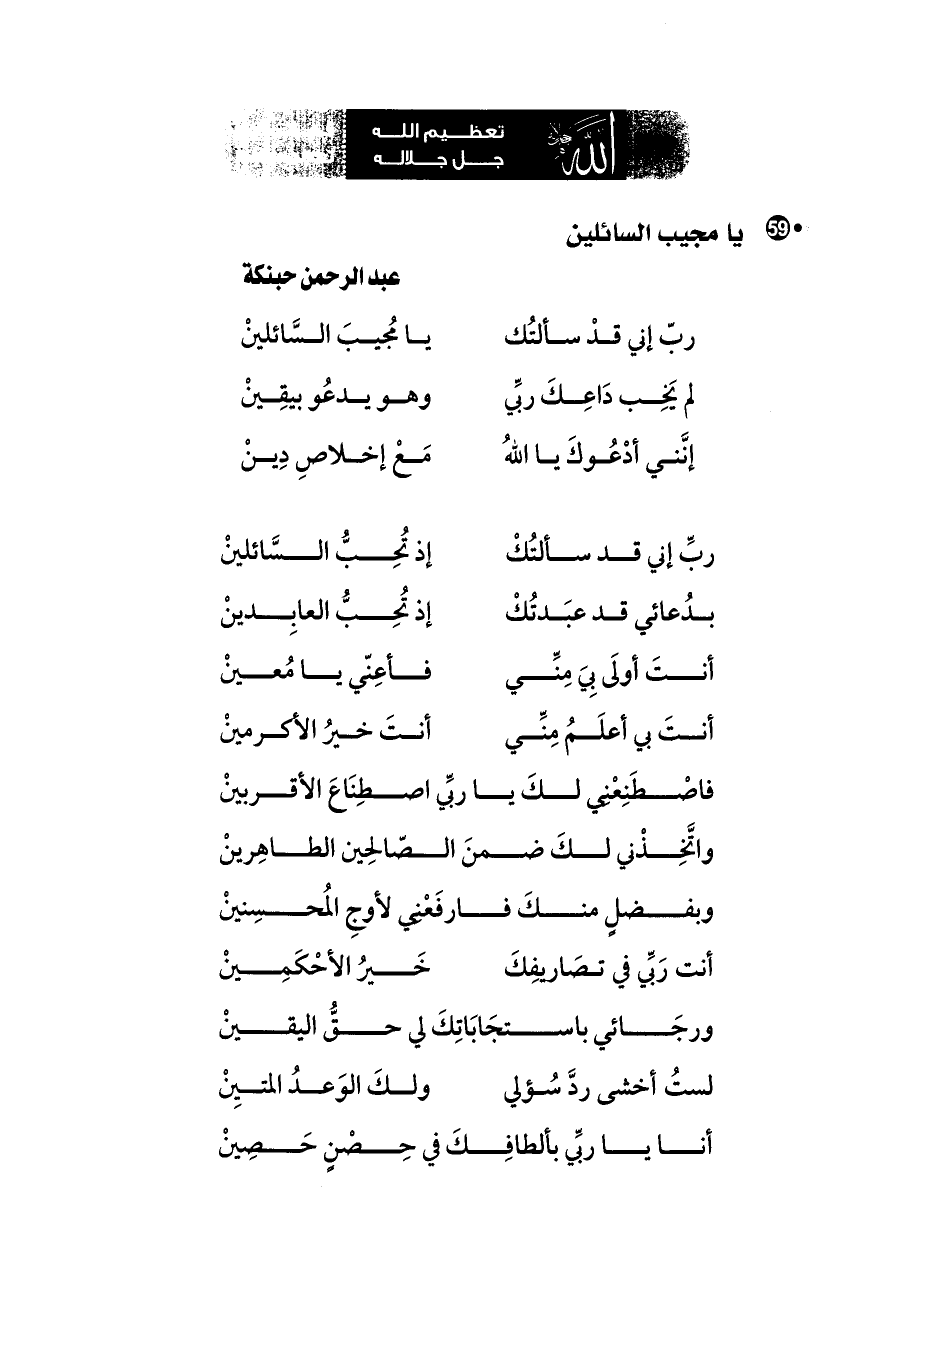 تعظيم الله
جل جلاله
الله
59 يا مجيب السائلين
عبد الرحمن حبنكة
ربّ إني قدْ سألتُك يا مُجيبَ السَّائلينْ
لم يَخِب دَاعِكَ ربِّي وهو يدعُو بيقِينْ
إنَّني أدْعُوكَ يا اللهُ مَعْ إخلاصِ دِينْ
ربِّ إني قد سألتُكْ إذ تُحِبُّ السَّائلينْ
بدُعائي قد عبَدتُكْ إذ تُحِبُّ العابِدينْ
أنتَ أولَى بِيَ مِنِّي فأعِنّي يا مُعينْ
أنتَ بي أعلَمُ مِنِّي أنتَ خيرُ الأكرمينْ
فاصْطَنِعْنِي لكَ يا ربِّي اصطِنَاعَ الأقربينْ
واتَّخِذْني لكَ ضمنَ الصّالحِين الطاهِرينْ
وبفضلٍ منكَ فارفَعْنِي لأوجِ المُحسِنينْ
أنت رَبِّي في تصَاريفِكَ خَيرُ الأحْكَمِينْ
ورجَائي باستجَابَاتِكَ لي حقُّ اليقينْ
لستُ أخشى ردَّ سُؤلي ولكَ الوَعدُ المتيِنْ
أنا يا ربِّي بألطافِكَ في حِصْنٍ حَصِينْ